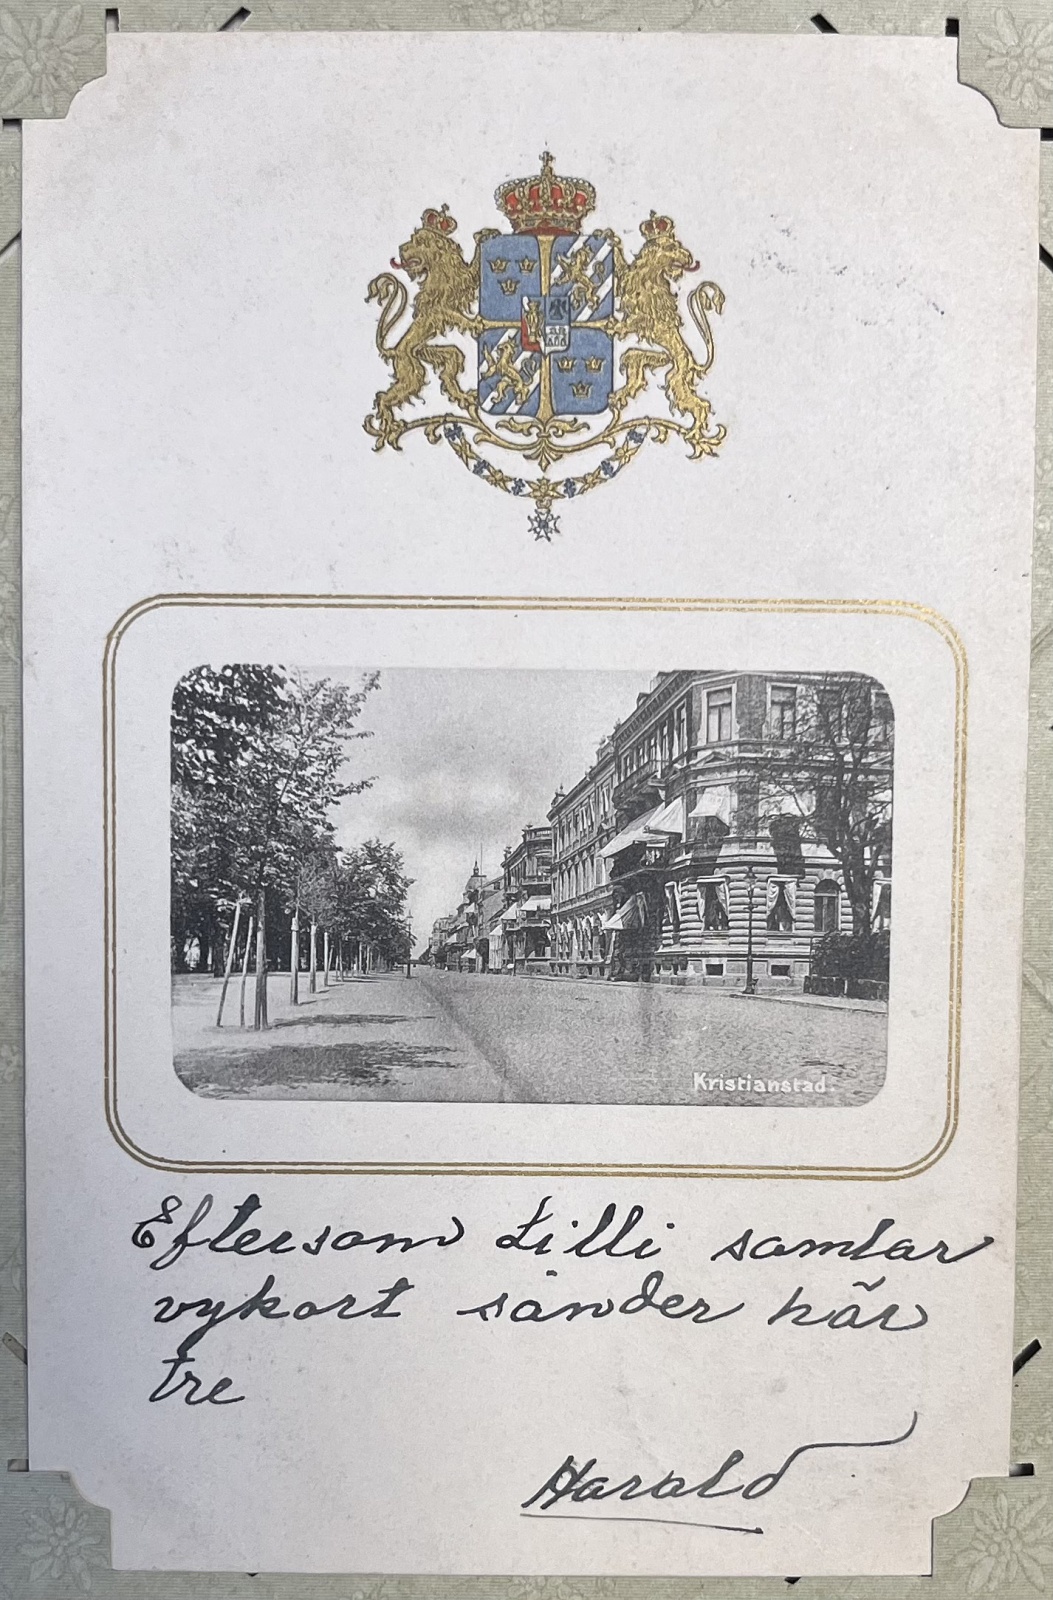 Kristianstad.
Eftersom Lilli samlar
vykort sänder här
tre
Harald